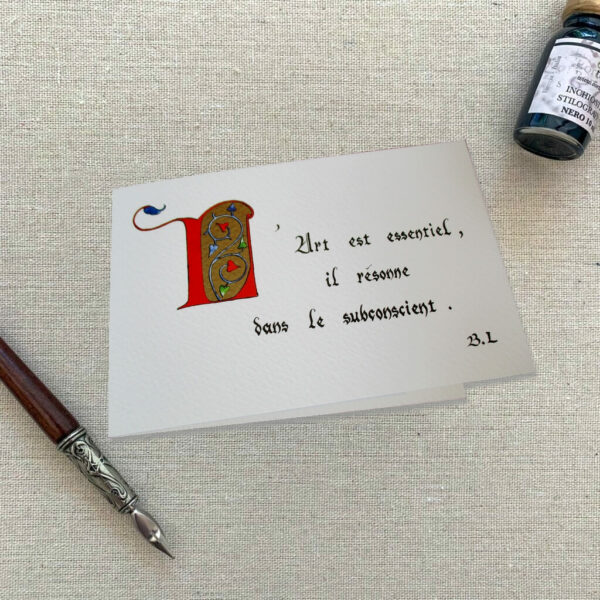 L'Art est essentiel,
il résonne
dans le subconscient.
B.L
NERO